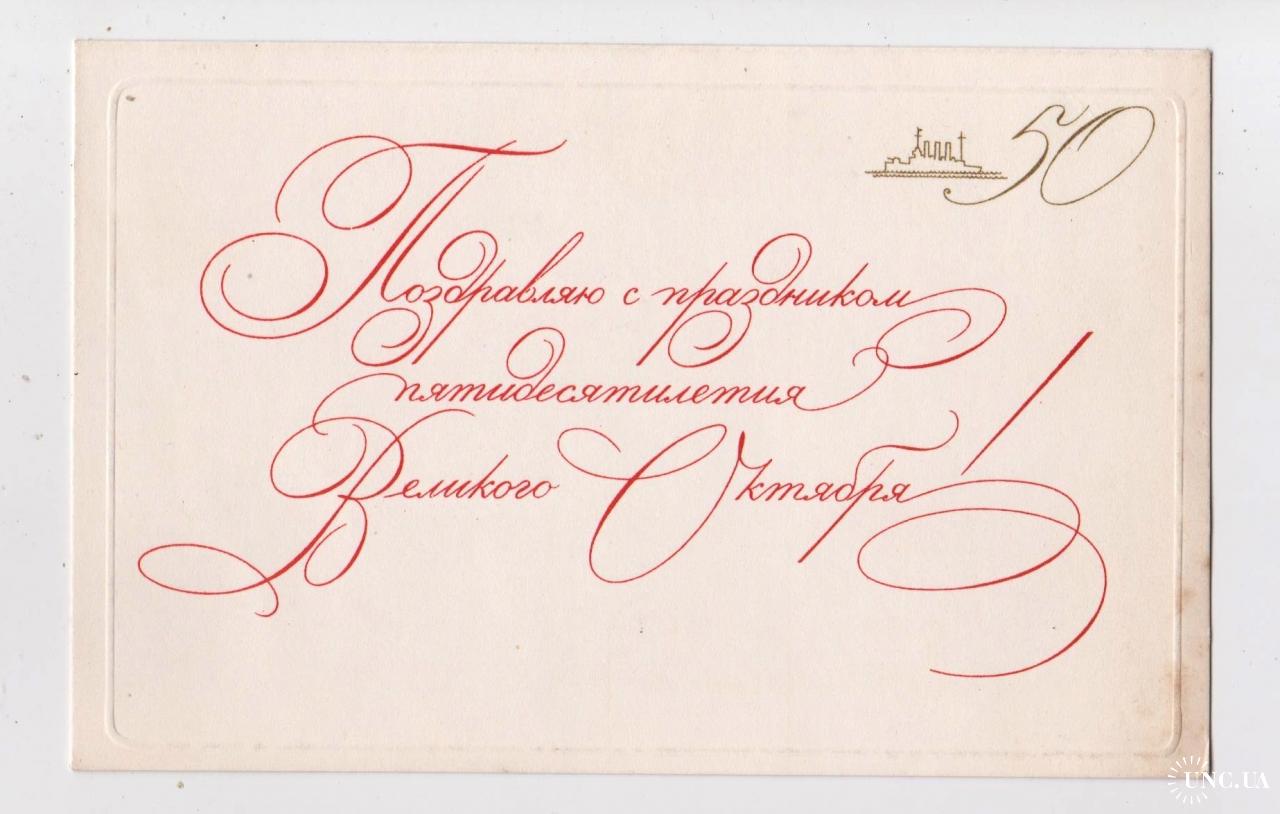 50
Поздравляю с праздником
пятидесятилетия
Великого Октября!
UNC.UA